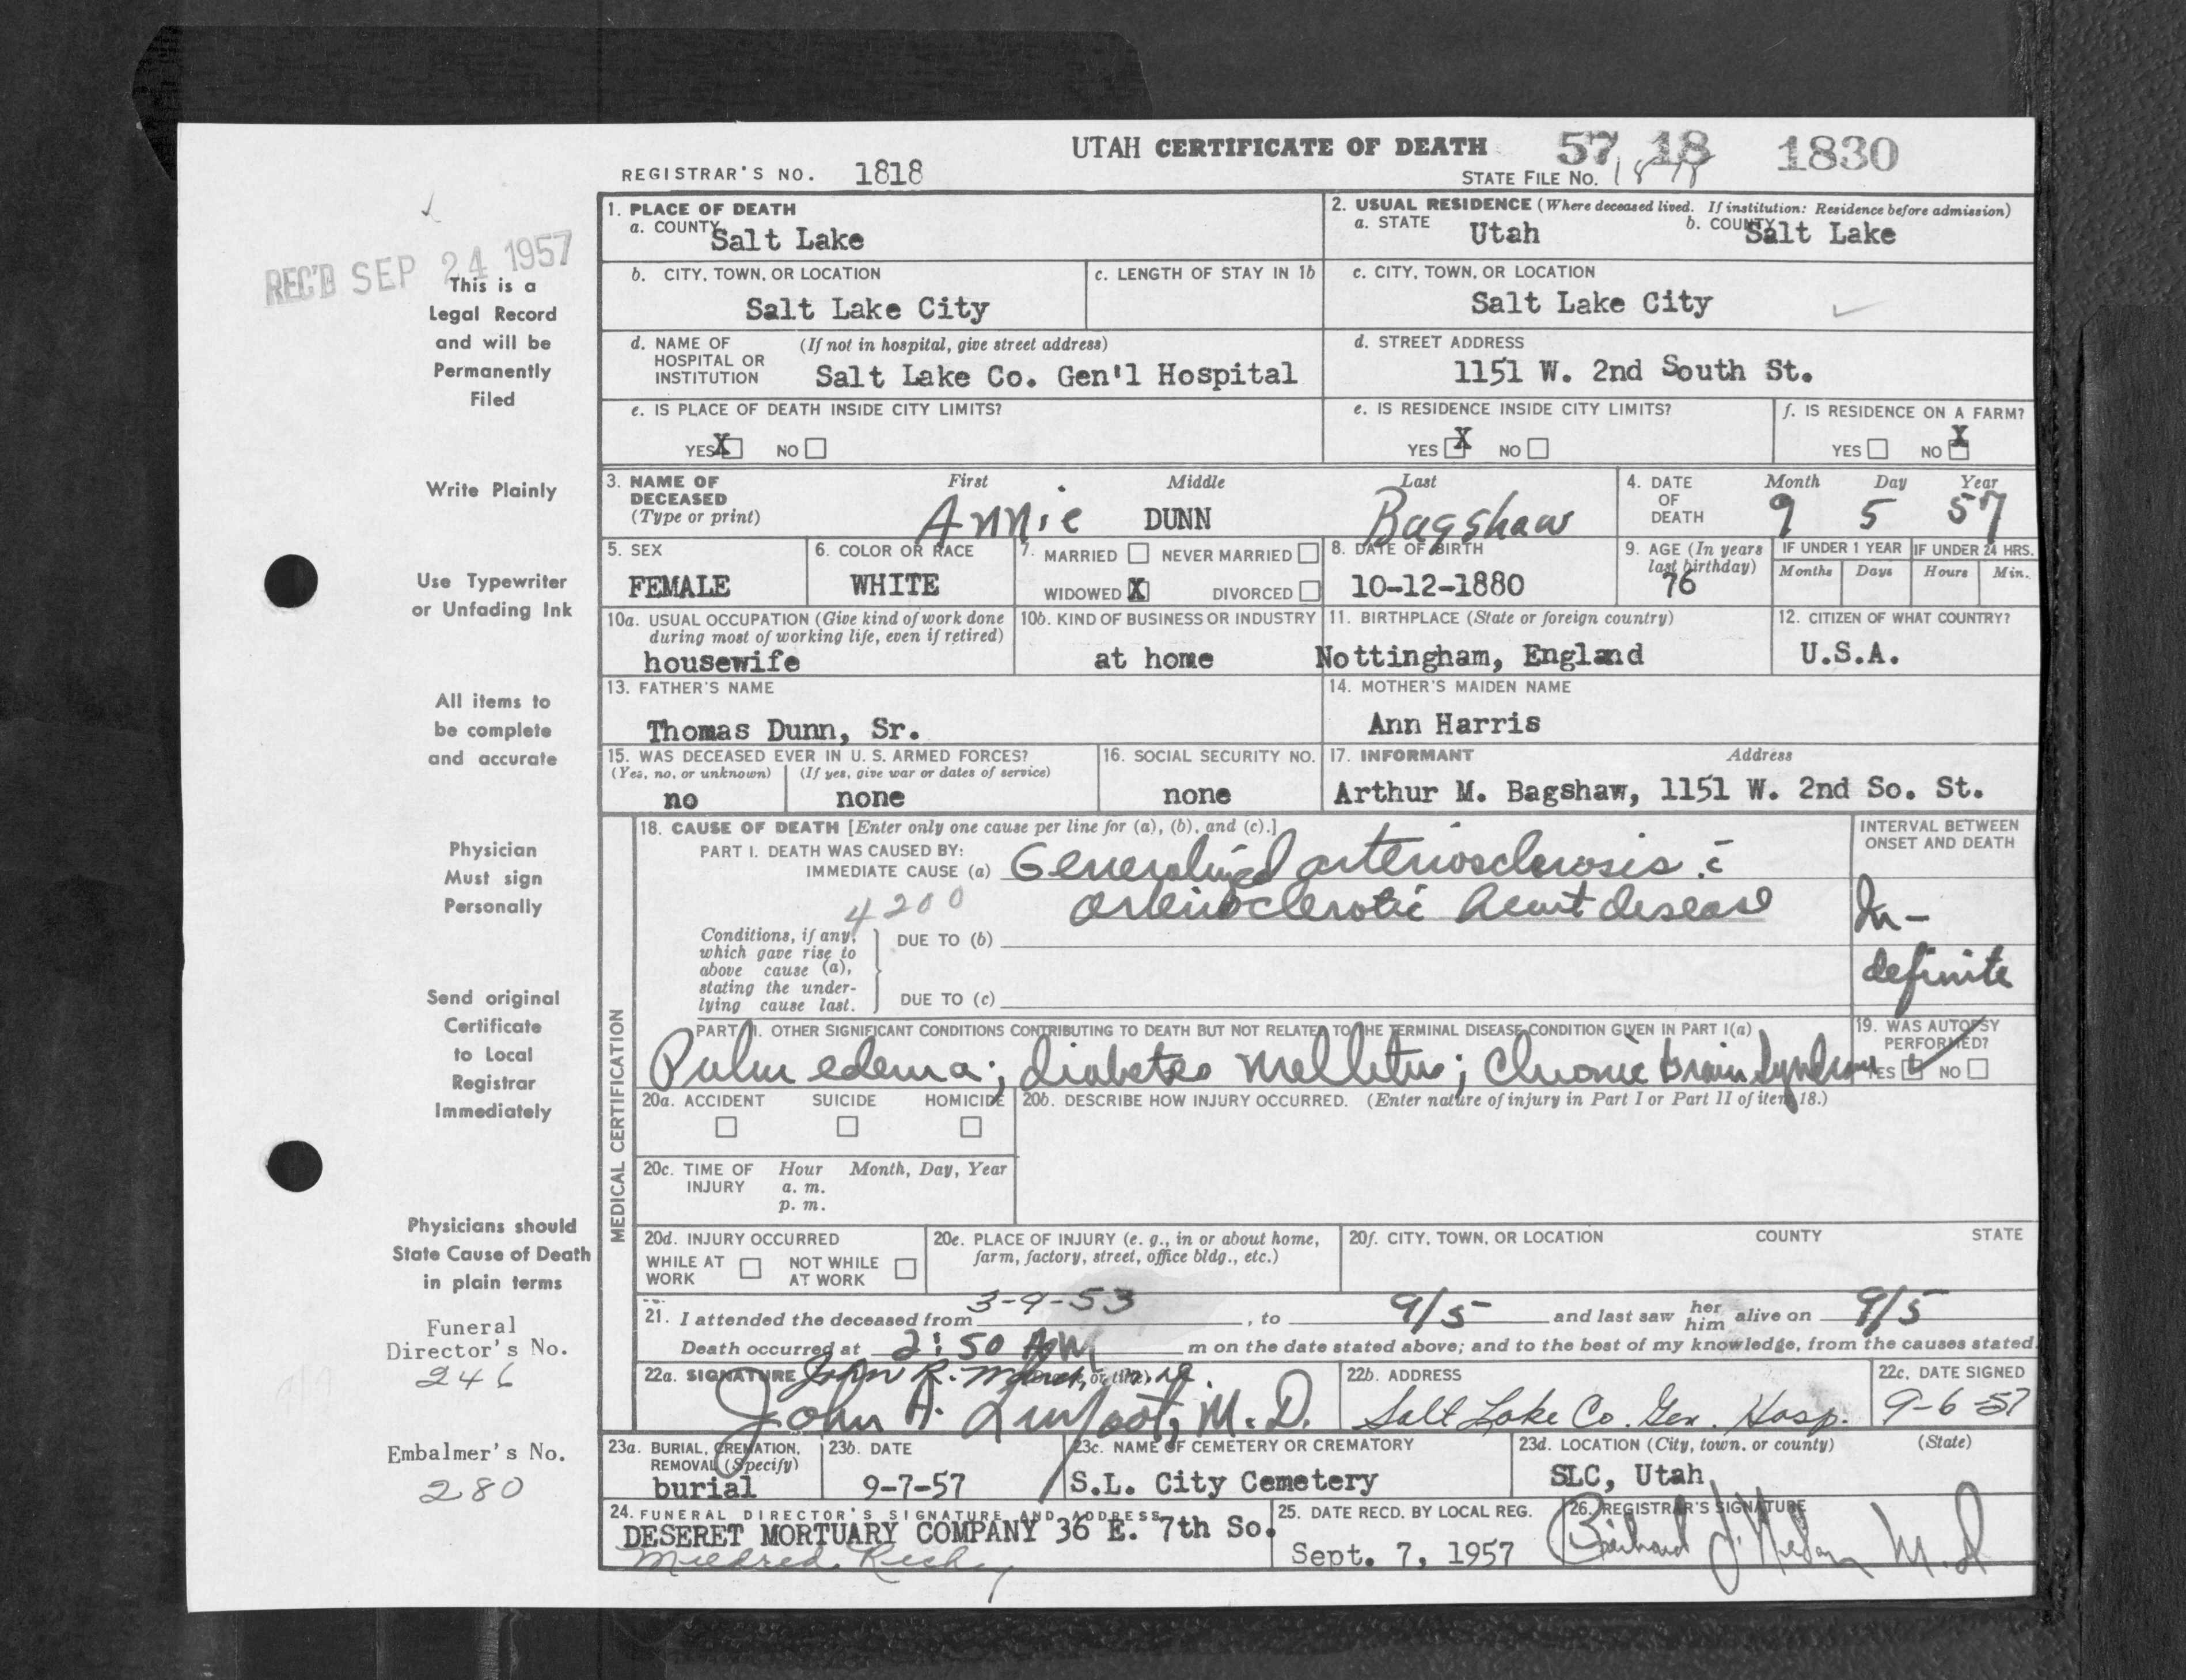 UTAH CERTIFICATE OF DEATH 57 18 1830
REGISTRAR'S NO. 1818 STATE FILE NO.
REC'D SEP 24 1957
This is a
Legal Record
and will be
Permanently
Filed
Write Plainly
Use Typewriter
or Unfading Ink
All items to
be complete
and accurate
Physician
Must sign
Personally
Send original
Certificate
to Local
Registrar
Immediately
Physicians should
State Cause of Death
in plain terms
Funeral
Director's No.
246
Embalmer's No.
280
1. PLACE OF DEATH
a. COUNTY Salt Lake
2. USUAL RESIDENCE (Where deceased lived. If institution: Residence before admission)
a. STATE Utah b. COUNTY Salt Lake
b. CITY, TOWN, OR LOCATION
Salt Lake City
c. LENGTH OF STAY IN 1b
c. CITY, TOWN, OR LOCATION
Salt Lake City
d. NAME OF HOSPITAL OR INSTITUTION (If not in hospital, give street address)
Salt Lake Co. Gen'l Hospital
d. STREET ADDRESS
1151 W. 2nd South St.
e. IS PLACE OF DEATH INSIDE CITY LIMITS?
YES X NO
e. IS RESIDENCE INSIDE CITY LIMITS?
YES X NO
f. IS RESIDENCE ON A FARM?
YES NO X
3. NAME OF DECEASED (Type or print) First Middle Last
Annie DUNN Bagshaw
4. DATE OF DEATH Month Day Year
9 5 57
5. SEX
FEMALE
6. COLOR OR RACE
WHITE
7. MARRIED NEVER MARRIED
WIDOWED X DIVORCED
8. DATE OF BIRTH
10-12-1880
9. AGE (In years last birthday)
76
IF UNDER 1 YEAR IF UNDER 24 HRS.
Months Days Hours Min.
10a. USUAL OCCUPATION (Give kind of work done during most of working life, even if retired)
housewife
10b. KIND OF BUSINESS OR INDUSTRY
at home
11. BIRTHPLACE (State or foreign country)
Nottingham, England
12. CITIZEN OF WHAT COUNTRY?
U.S.A.
13. FATHER'S NAME
Thomas Dunn, Sr.
14. MOTHER'S MAIDEN NAME
Ann Harris
15. WAS DECEASED EVER IN U. S. ARMED FORCES?
(Yes, no, or unknown) (If yes, give war or dates of service)
no none
16. SOCIAL SECURITY NO.
none
17. INFORMANT Address
Arthur M. Bagshaw, 1151 W. 2nd So. St.
MEDICAL CERTIFICATION
18. CAUSE OF DEATH [Enter only one cause per line for (a), (b), and (c).]
PART I. DEATH WAS CAUSED BY:
IMMEDIATE CAUSE (a) Generalized arteriosclerosis c̄
4200 arteriosclerotic heart disease
Conditions, if any, which gave rise to above cause (a), stating the underlying cause last.
DUE TO (b)
DUE TO (c)
INTERVAL BETWEEN ONSET AND DEATH
In-
definite
PART II. OTHER SIGNIFICANT CONDITIONS CONTRIBUTING TO DEATH BUT NOT RELATED TO THE TERMINAL DISEASE CONDITION GIVEN IN PART I(a)
Pulm edema; diabetes mellitus; Chronic brain syndrome
19. WAS AUTOPSY PERFORMED?
YES NO
20a. ACCIDENT SUICIDE HOMICIDE
20b. DESCRIBE HOW INJURY OCCURRED. (Enter nature of injury in Part I or Part II of item 18.)
20c. TIME OF INJURY Hour Month, Day, Year
a. m.
p. m.
20d. INJURY OCCURRED
WHILE AT WORK NOT WHILE AT WORK
20e. PLACE OF INJURY (e. g., in or about home, farm, factory, street, office bldg., etc.)
20f. CITY, TOWN, OR LOCATION COUNTY STATE
21. I attended the deceased from 3-9-53, to 9/5 and last saw her him alive on 9/5
Death occurred at 2:50 AM m on the date stated above; and to the best of my knowledge, from the causes stated.
22a. SIGNATURE John R.
John A. M.D.
22b. ADDRESS
Salt Lake Co. Gen. Hosp.
22c. DATE SIGNED
9-6-57
23a. BURIAL, CREMATION, REMOVAL (Specify)
burial
23b. DATE
9-7-57
23c. NAME OF CEMETERY OR CREMATORY
S.L. City Cemetery
23d. LOCATION (City, town, or county) (State)
SLC, Utah
24. FUNERAL DIRECTOR'S SIGNATURE AND ADDRESS
DESERET MORTUARY COMPANY 36 E. 7th So.
Mildred
25. DATE RECD. BY LOCAL REG.
Sept. 7, 1957
26. REGISTRAR'S SIGNATURE
M.D